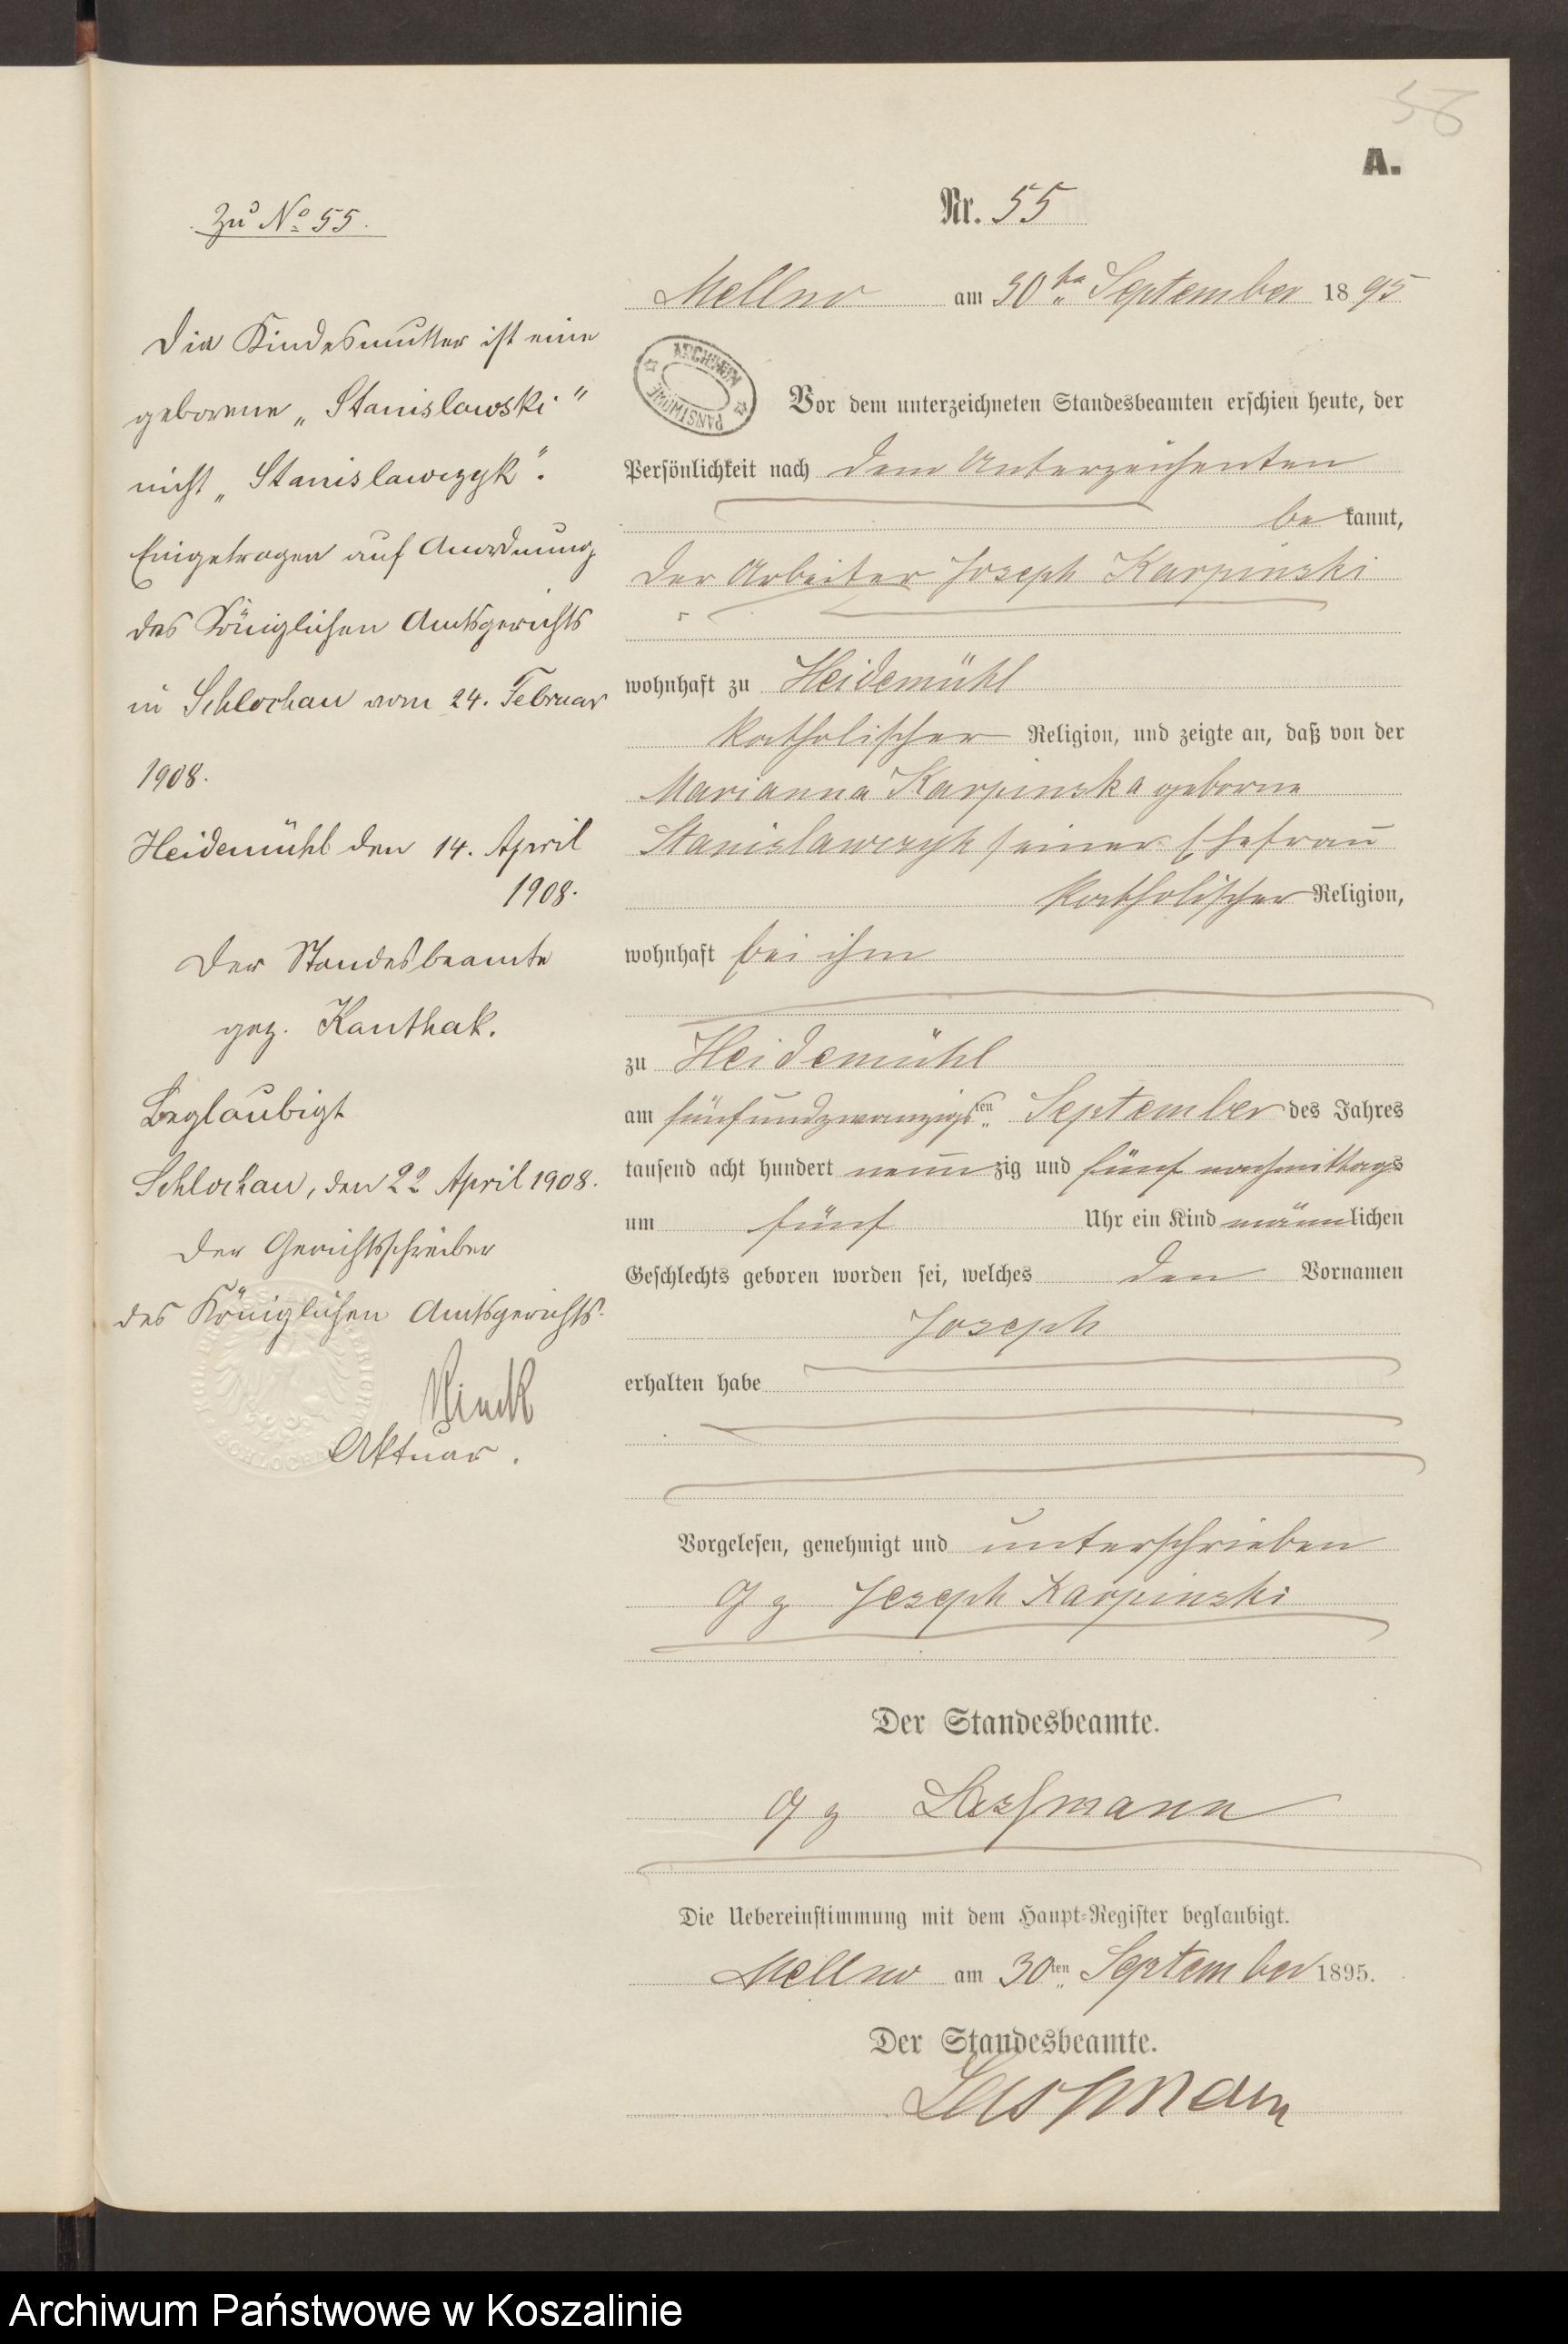 58
A.
Nr. 55
Mellno am 30ten September 1895
ARCHIWUM PAŃSTWOWE
Vor dem unterzeichneten Standesbeamten erschien heute, der
Persönlichkeit nach dem Unterzeichenten
be kannt,
der Arbeiter Joseph Karpinski
wohnhaft zu Heidemühl
katholischer Religion, und zeigte an, daß von der
Marianna Karpinska geborne
Stanislawczyk seiner Ehefrau
katholischer Religion,
wohnhaft bei ihm
zu Heidemühl
am fünfundzwanzigsten September des Jahres
tausend acht hundert neunzig und fünf nachmittags
um fünf Uhr ein Kind männlichen
Geschlechts geboren worden sei, welches den Vornamen
Joseph
erhalten habe
Vorgelesen, genehmigt und unterschrieben
gz Joseph Karpinski
Der Standesbeamte.
gz
Die Uebereinstimmung mit dem Haupt-Register beglaubigt.
Mellno am 30ten September 1895.
Der Standesbeamte.
Zu No 55.
Die Kindesmutter ist eine
geborene „Stanislawski"
nicht „Stanislawczyk".
Eingetragen auf Anordnung
des Königlichen Amtsgerichts
in Schlochau vom 24. Februar
1908.
Heidemühl den 14. April
1908.
Der Standesbeamte
gez. Kanthak.
Beglaubigt
Schlochau, den 22 April 1908.
Der Gerichtsschreiber
des Königlichen Amtsgerichts.
Aktuar.
Archiwum Państwowe w Koszalinie